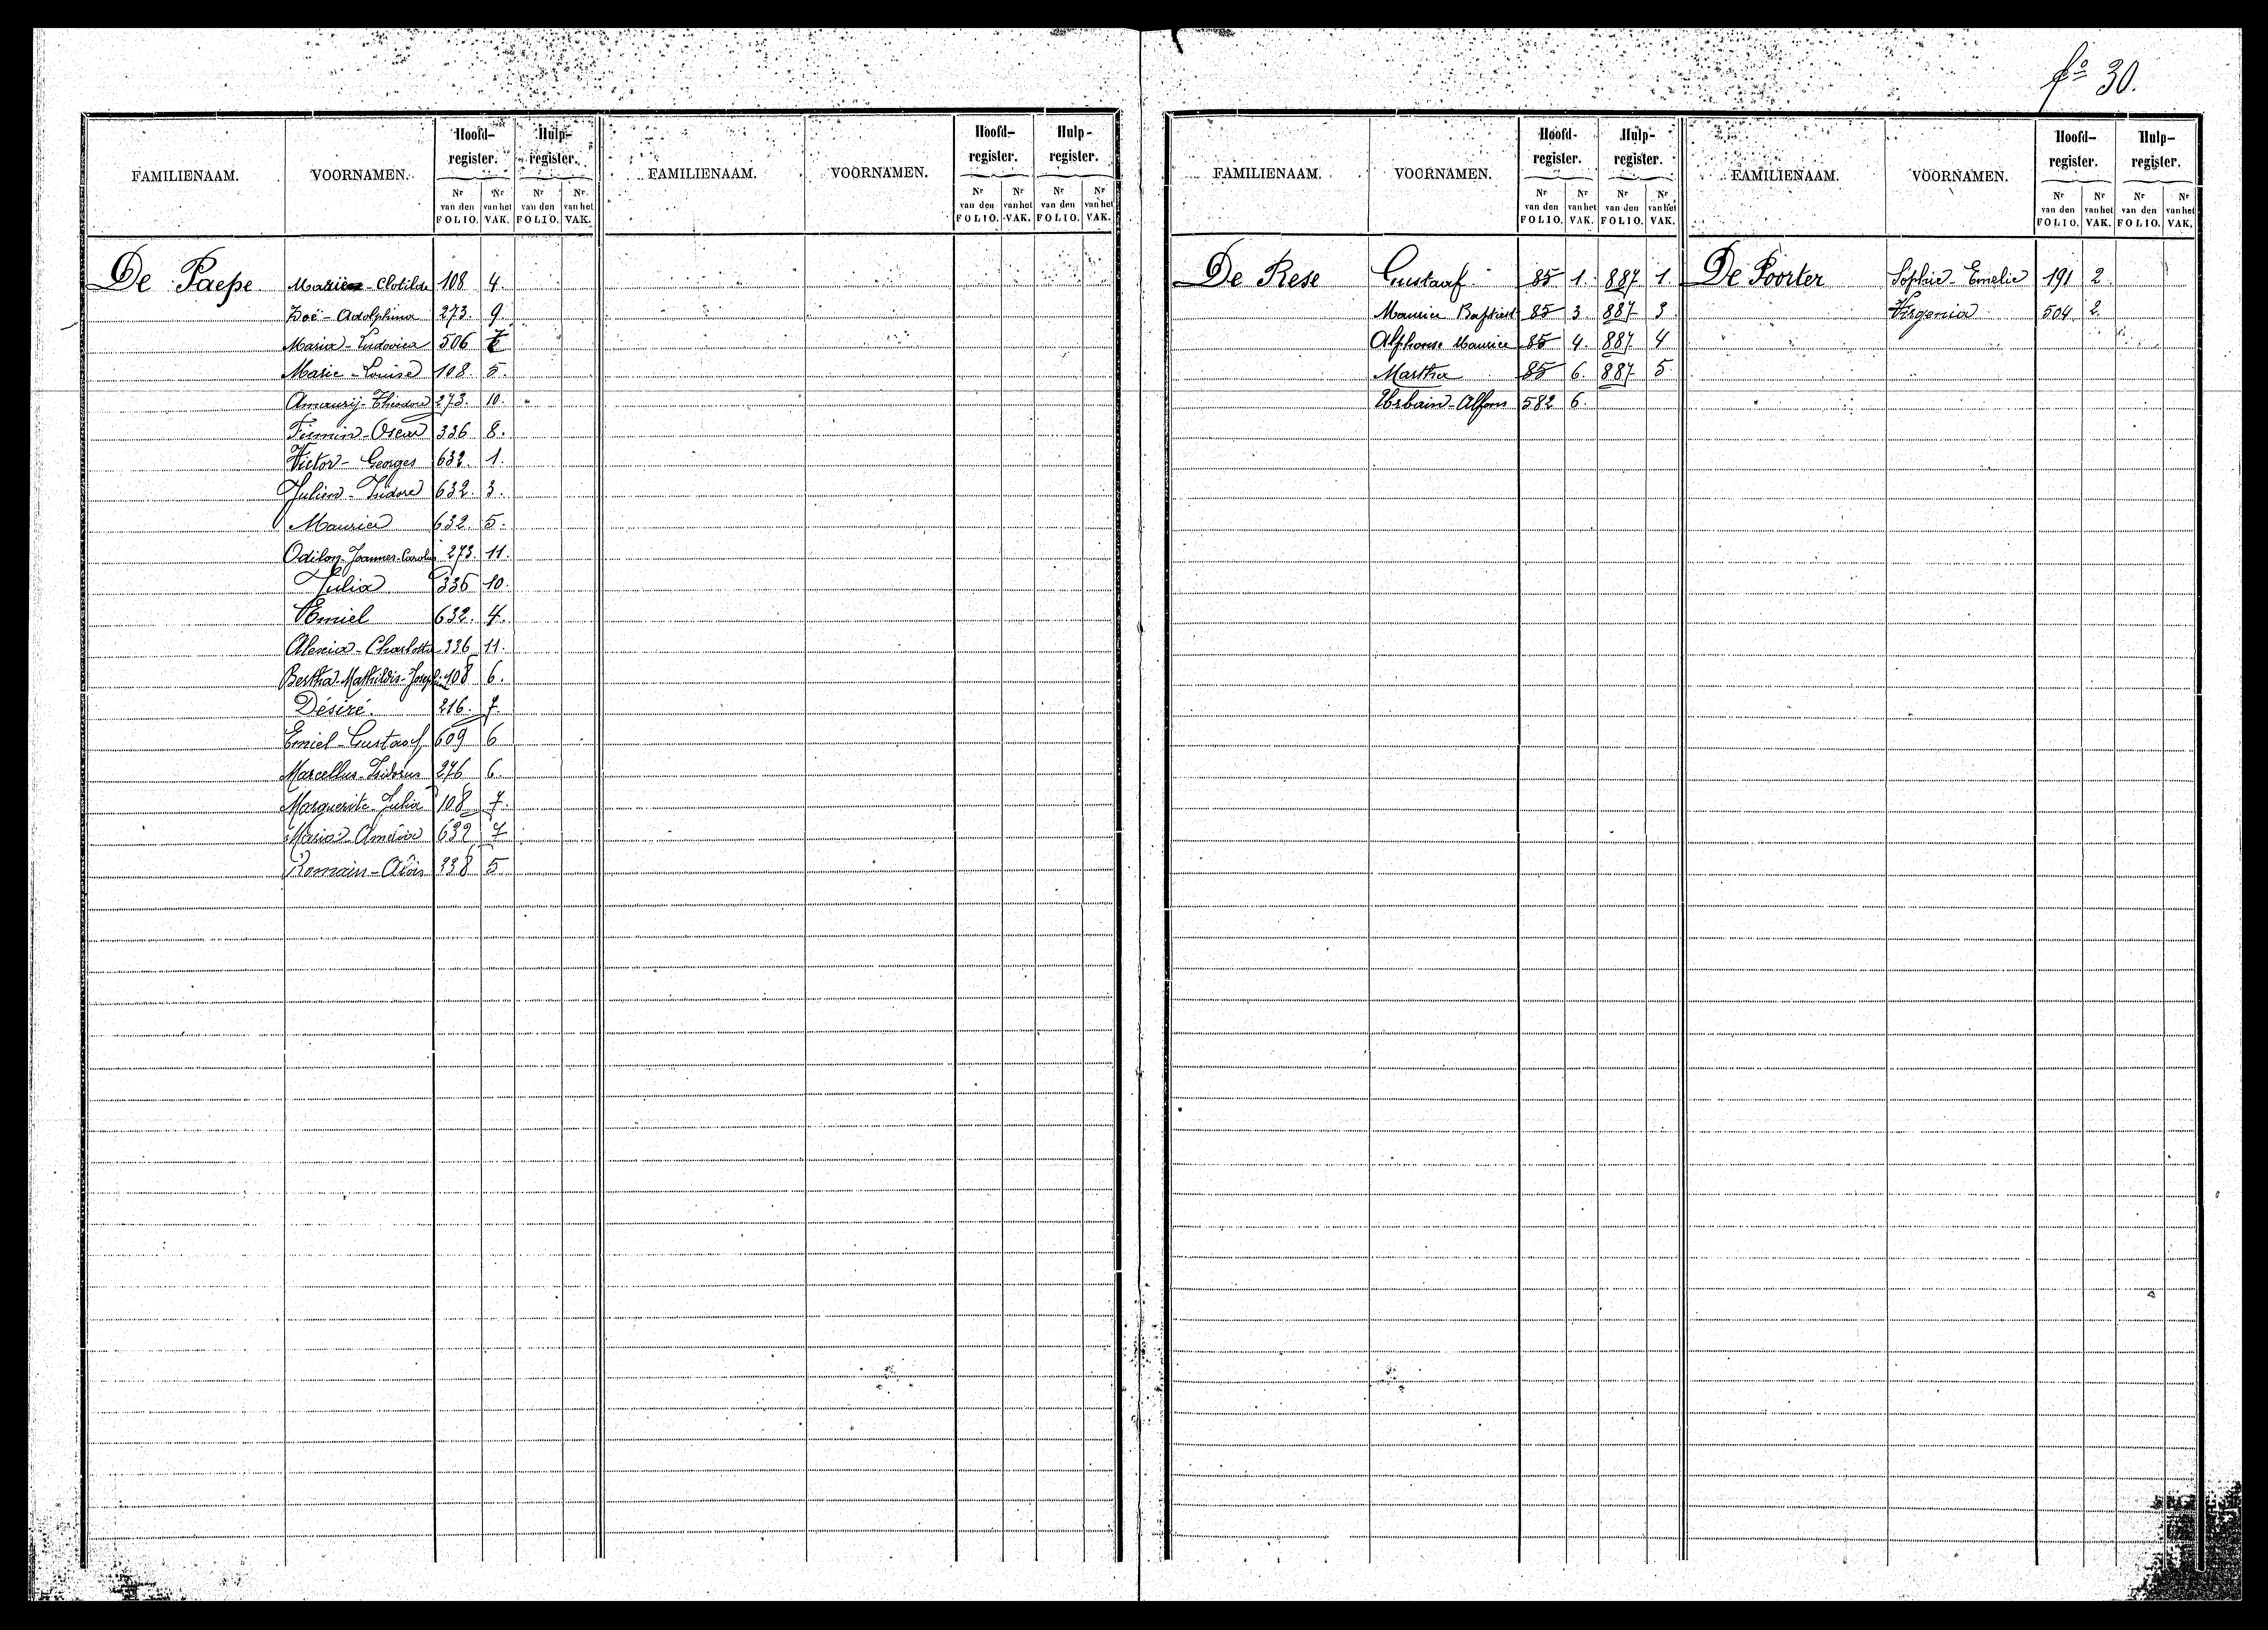 fº 30.
FAMILIENAAM. VOORNAMEN. Hoofd-register. Hulp-register. FAMILIENAAM. VOORNAMEN. Hoofd-register. Hulp-register.
Nr van den FOLIO. Nr van het VAK. Nr van den FOLIO. Nr van het VAK. Nr van den FOLIO. Nr van het VAK. Nr van den FOLIO. Nr van het VAK.
De Paepe Marie - Clotilde 108 4.
Zoé - Adolphina 273. 9.
Maria - Ludovica 506
Marie - Louise 108. 5.
Amaurij - Theodore 273. 10.
Firmin - Oscar 336 8.
Victor - Georges 632. 1.
Julien - Isidore 632. 3.
Maurice 632 5.
Odilon - Joannes - Carolus 273. 11.
Julia 336 10.
Emiel 632. 4.
Alenia - Charlotta 336 11.
Bertha - Mathildis - Josephina 108 6.
Désiré. 216. 7.
Emiel - Gustaaf 609 6
Marcellus - Isidorus 276 6.
Marguerite Julia 108 7.
Maria - 632 7
Romain - Aloïs 338 5
FAMILIENAAM. VOORNAMEN. Hoofd-register. Hulp-register. FAMILIENAAM. VOORNAMEN. Hoofd-register. Hulp-register.
Nr van den FOLIO. Nr van het VAK. Nr van den FOLIO. Nr van het VAK. Nr van den FOLIO. Nr van het VAK. Nr van den FOLIO. Nr van het VAK.
De Rese Gustaaf 85 1. 887 1. De Poorter Sophie - Emelie 191 2.
Maurice Baptist 85 3. 887 3. Virgenia 504 2.
Alphonse Maurice 85 4. 887 4
Martha 85 6. 887 5
Urbain - Alfons 582 6.